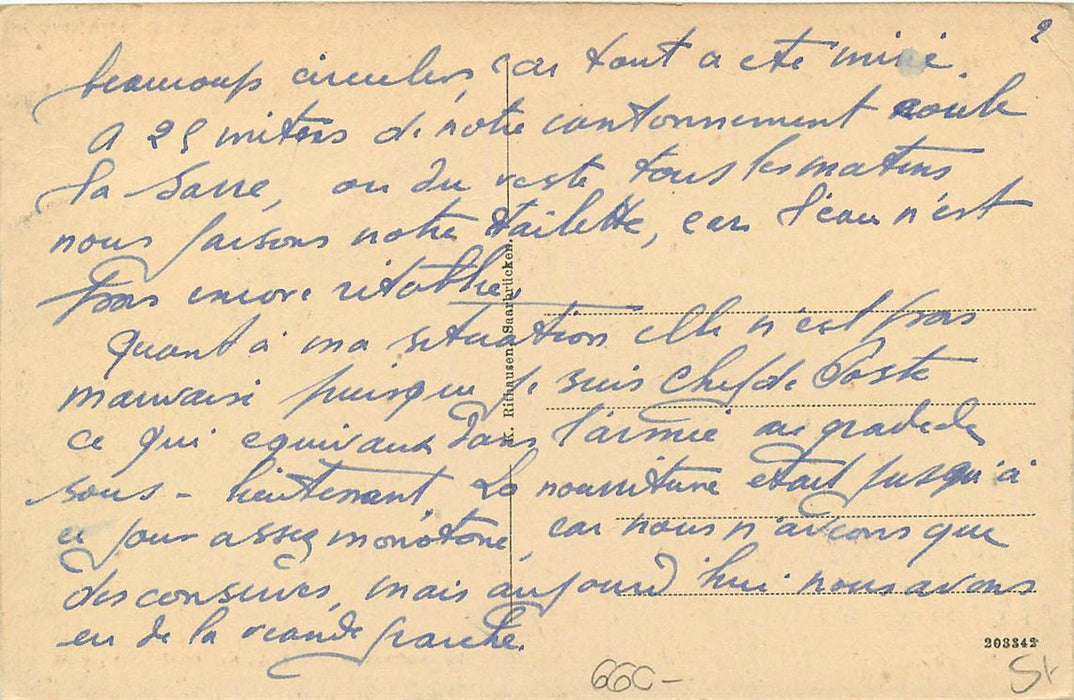 2
beaucoup circuler, car tout a été miné.
A 25 mètres de notre cantonnement coule
la Sarre, ou du reste tous les matins
nous faisons notre toilette, car l'eau n'est
pas encore rétablie.
Quant à ma situation elle n'est pas
mauvaise puisque je suis Chef de Poste
ce qui equivaux dans l'armée au grade de
sous-lieutenant. La nourriture était jusqu'à
ce jour assez monotone, car nous n'avions que
des conserves, mais aujourd'hui nous avons
eu de la viande fraiche.
K. Rithausen, Saarbrücken.
203342
660-
St